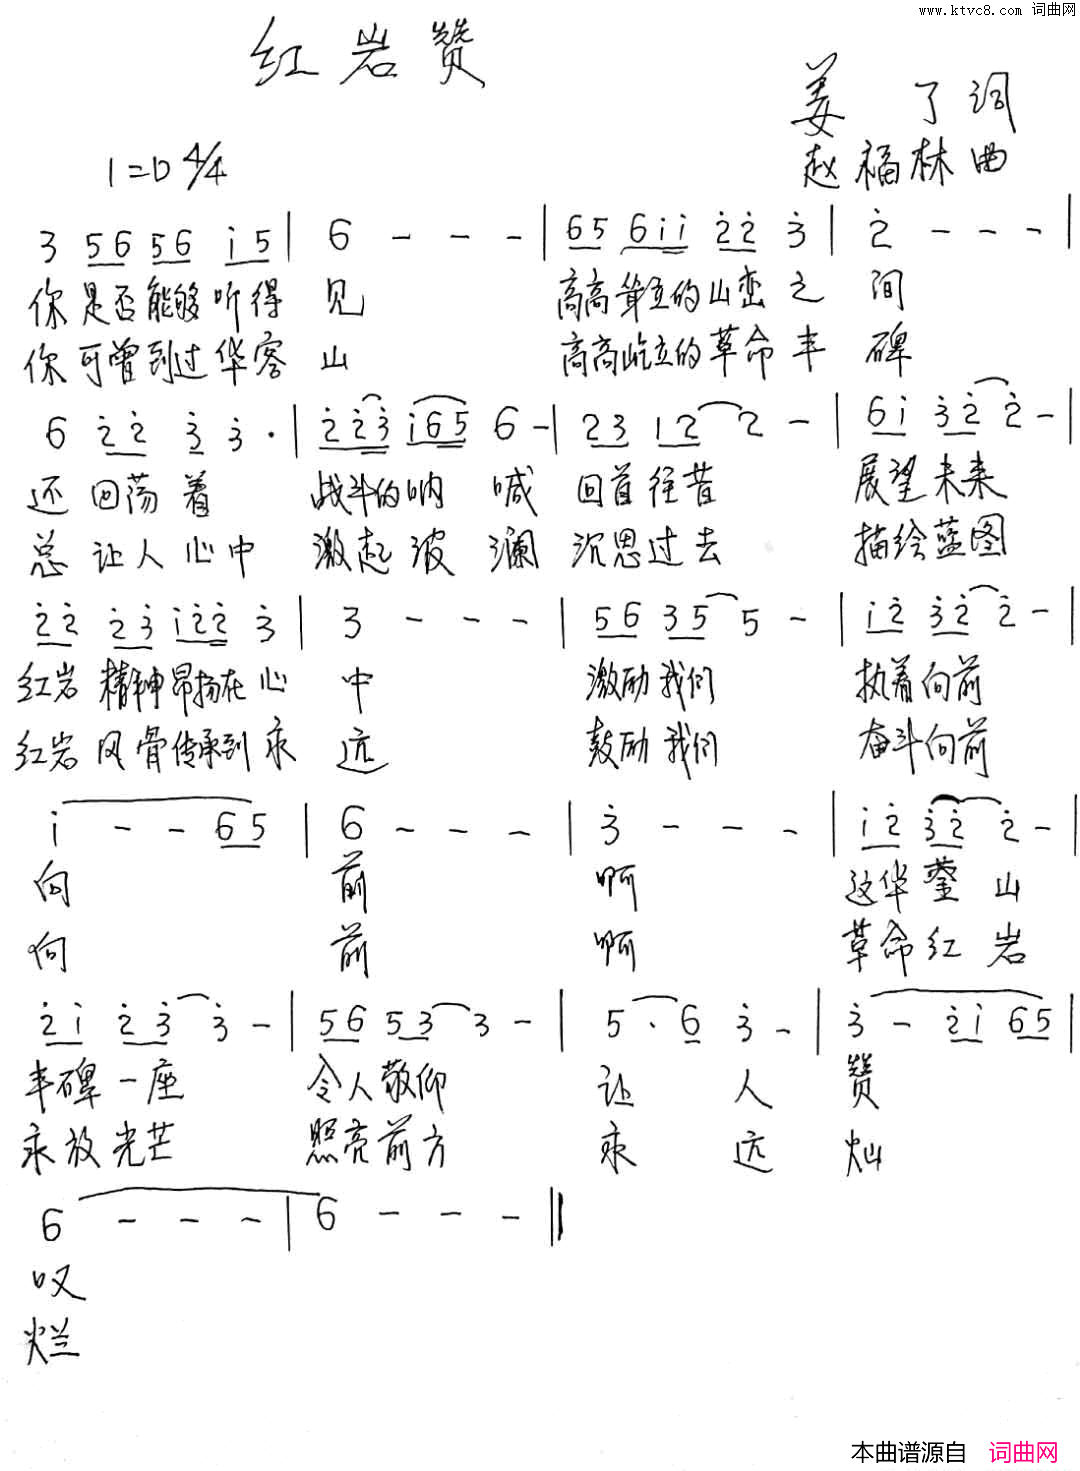 www.ktvc8.com 词曲网
红岩赞
姜了词
1=D 4/4
赵福林曲
3 56 56 i5 | 6 - - - | 65 6ii 22 3 | 2 - - - |
你是否能够听得见 高高耸立的山峦之间
你可曾到过华蓥山 高高屹立的革命丰碑
6 22 3 3. | 223 i65 6 - | 23 12 2 - | 6i 32 2 - |
还回荡着 战斗的呐喊 回首往昔 展望未来
总让人心中 激起波澜 沉思过去 描绘蓝图
22 23 i22 3 | 3 - - - | 56 35 5 - | i2 32 2 - |
红岩精神昂扬在心中 激励我们 执着向前
红岩风骨传承到永远 鼓励我们 奋斗向前
i - - 65 | 6 - - - | 3 - - - | i2 32 2 - |
向 前 啊 这华蓥山
向 前 啊 革命红岩
2i 23 3 - | 56 53 3 - | 5. 6 3 - | 3 - 2i 65 |
丰碑一座 令人敬仰 让人赞
永放光芒 照亮前方 永远灿
6 - - - | 6 - - - ||
叹
烂
本曲谱源自 词曲网